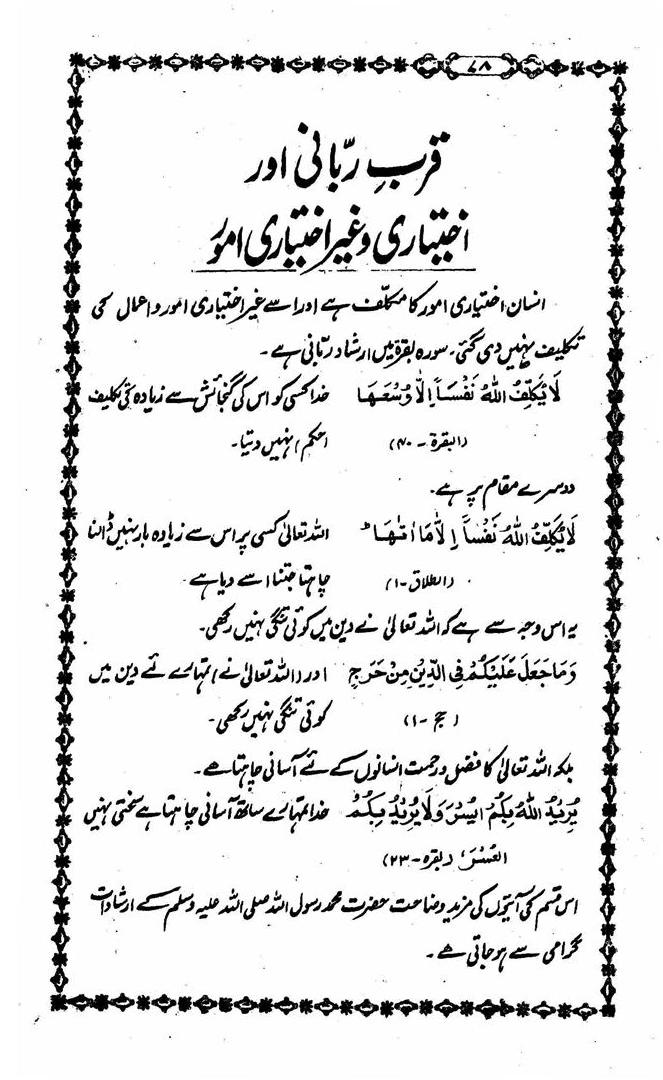 ۷۸
قربِ ربّانی اور
اختیاری وغیر اختیاری امور
انسان اختیاری امور کا مکلّف ہے اور اسے غیر اختیاری امور و اعمال کی
تکلیف نہیں دی گئی۔ سورہ بقرۃ میں ارشاد ربّانی ہے۔
لَا یُکَلِّفُ اللّٰہُ نَفْسًا اِلَّا وُسْعَهَا خدا کسی کو اس کی گنجائش سے زیادہ کی تکلیف
(البقرۃ - ۴۰) (حکم) نہیں دیتا۔
دوسرے مقام پر ہے۔
لَا یُکَلِّفُ اللّٰہُ نَفْسًا اِلَّا مَا اٰتٰهَا ؕ اللہ تعالیٰ کسی پر اس سے زیادہ بار نہیں ڈالنا
(الطلاق - ۱) چاہتا جتنا اسے دیا ہے۔
یہ اس وجہ سے ہے کہ اللہ تعالیٰ نے دین میں کوئی تنگی نہیں رکھی۔
وَمَا جَعَلَ عَلَیْکُمْ فِی الدِّیْنِ مِنْ حَرَجٍ اور (اللہ تعالیٰ نے) تمہارے لئے دین میں
(حج - ۱) کوئی تنگی نہیں رکھی۔
بلکہ اللہ تعالیٰ کا فضل و رحمت انسانوں کے لئے آسانی چاہتا ہے۔
یُرِیْدُ اللّٰہُ بِکُمُ الیُسْرَ وَلَا یُرِیْدُ بِکُمُ خدا تمہارے ساتھ آسانی چاہتا ہے سختی نہیں
العُسْرَ (بقرہ - ۲۳)
اس قسم کی آیتوں کی مزید وضاحت حضرت محمد رسول اللہ صلی اللہ علیہ وسلم کے ارشادات
گرامی سے ہو جاتی ہے۔